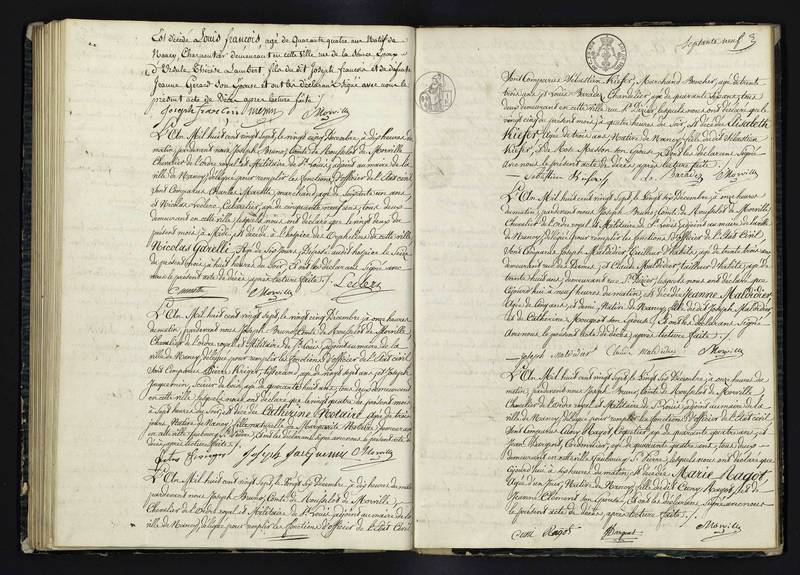 Est décédé Louis françois, agé de Quarante quatre ans Natif de
Nancy, Charpentier demeurant en cette ville rue de la
D'Ursule Thérèse Lambert, fils du dit Joseph francois et de défunte
Jeanne Gérard son Epouse et ont les déclarans Signé avec nous le
présent acte de Décès après lecture faite /.
Joseph francois Morville
L'An Mil huit cent vingt sept, le vingt Décembre, à dix heures du
matin, pardevant nous Joseph Bruno, Comte de Rousselot de Morville,
Chevalier de l'ordre royal et Militaire de St Louis, adjoint au maire de la
ville de Nancy, délégué pour remplir les fonctions d'officier de l'Etat civil
Sont Comparus Charles marchand, agé de Soixante un ans,
et Nicolas Leclerc, agé de cinquante neuf ans, tous deux
demeurant en cette ville, lesquels nous ont déclaré que le vingt deux du
présent mois à Midi, est décédé à l'hospice des Orphelins de cette ville,
Nicolas Garelli, Agé de Six Jours, Déposé audit hospice le Seize
du présent mois, à huit heures du Soir, Et ont les déclarans Signé avec
nous le présent acte de décès, après lecture faite /.
Morville Leclerc
L'An Mil huit cent vingt sept, le vingt cinq Décembre, à onze heures
du matin, pardevant nous Joseph Bruno, Comte de Rousselot de Morville,
Chevalier de l'ordre royal et Militaire de St Louis, adjoint au maire de la
ville de Nancy, délégué pour remplir les fonctions d'officier de l'Etat civil
Sont Comparus Pierre agé de vingt sept ans, et Joseph
Jacquemin, Scieur de bois, agé de quarante huit ans, tous deux demeurant
en cette ville lesquels nous ont déclaré que le vingt quatre du présent mois
à Sept heures du Soir, est décédée Catherine Notaire, agée de treize
jours, Native de Nancy, fille naturelle de Marguerite Notaire demeurant
en cette ville faubourg St Pierre, Et ont les déclarans Signé avec nous le présent acte de
décès, après lecture faite /.
Joseph Jacquemin Morville
L'An Mil huit cent vingt sept, le vingt six Décembre, à dix heures du matin
pardevant nous Joseph Bruno, Comte de Rousselot de Morville,
Chevalier de l'Ordre royal et Militaire de St Louis, adjoint au maire de la
ville de Nancy, délégué pour remplir les fonctions d'officier de l'Etat Civil
Septante neuf
Sont Comparus Sébastien Kiefer, Marchand Boucher, agé de trente
trois ans, et Louis Baradez, Chandelier, agé de quarante ans, tous
deux demeurant en cette ville, lesquels nous ont déclaré que le
vingt cinq du présent mois, à quatre heures du Soir, est décédée Elisabeth
Kiefer, Agée de trois ans, Native de Nancy, fille du dit Sébastien
Kiefer, et de Rose Masson son Epouse, Et ont les déclarans Signé
Avec nous le présent acte de décès, après lecture faite /.
Sebastien Kiefer Baradez Morville
L'An Mil huit cent vingt sept, le Vingt Six Décembre, à onze heures
du matin, pardevant nous Joseph Bruno, Comte de Rousselot de Morville,
Chevalier de l'ordre royal et Militaire de St Louis, adjoint au maire de la ville
de Nancy, délégué pour remplir les fonctions d'officier de l'Etat Civil,
Sont Comparus Joseph Malvidier, tailleur d'habits, agé de trente trois ans
demeurant rue et Claude Malvidier tailleur d'habits, agé de
trente huit ans, demeurant rue St lesquels nous ont déclaré que
Aujourd'hui à neuf heures du matin, est décédée Jeanne Malvidier
Agée de Cinq ans et demi, Native de Nancy, fille du dit Joseph Malvidier
et de Catherine Mougeot son Epouse, Et ont les déclarans Signé
Avec nous le présent acte de Décès, après lecture faite /.
Joseph Malvidier Claude Malvidier Morville
L'An Mil huit cent vingt Sept, le Vingt Six Décembre, à onze heures du
matin, pardevant nous Joseph Bruno, Comte de Rousselot de Morville,
Chevalier de l'ordre royal et Militaire de St Louis, adjoint au maire de la
ville de Nancy, délégué pour remplir les fonctions d'officier de l'Etat Civil
Sont Comparus Cuny Ragot, agé de quarante quatre ans, et
Jean Bargeot, Cordonnier, agé de quarante quatre ans, tous deux
demeurant en cette ville, faubourg St Pierre, lesquels nous ont déclaré que
Aujourd'hui à Six heures du matin, est décédée Marie Ragot,
Agée d'un Jour, Native de Nancy, fille du dit Cuny Ragot, et de
Jeanne Clément son Epouse, Et ont les déclarans Signé avec nous
le présent acte de Décès, après lecture faite /.
Cuni Ragot Bargeot Morville